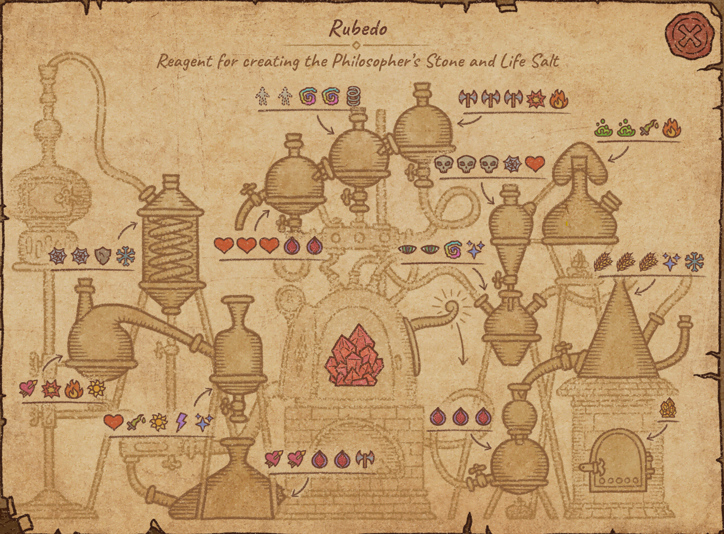 Rubedo
Reagent for creating the Philosopher's Stone and Life Salt